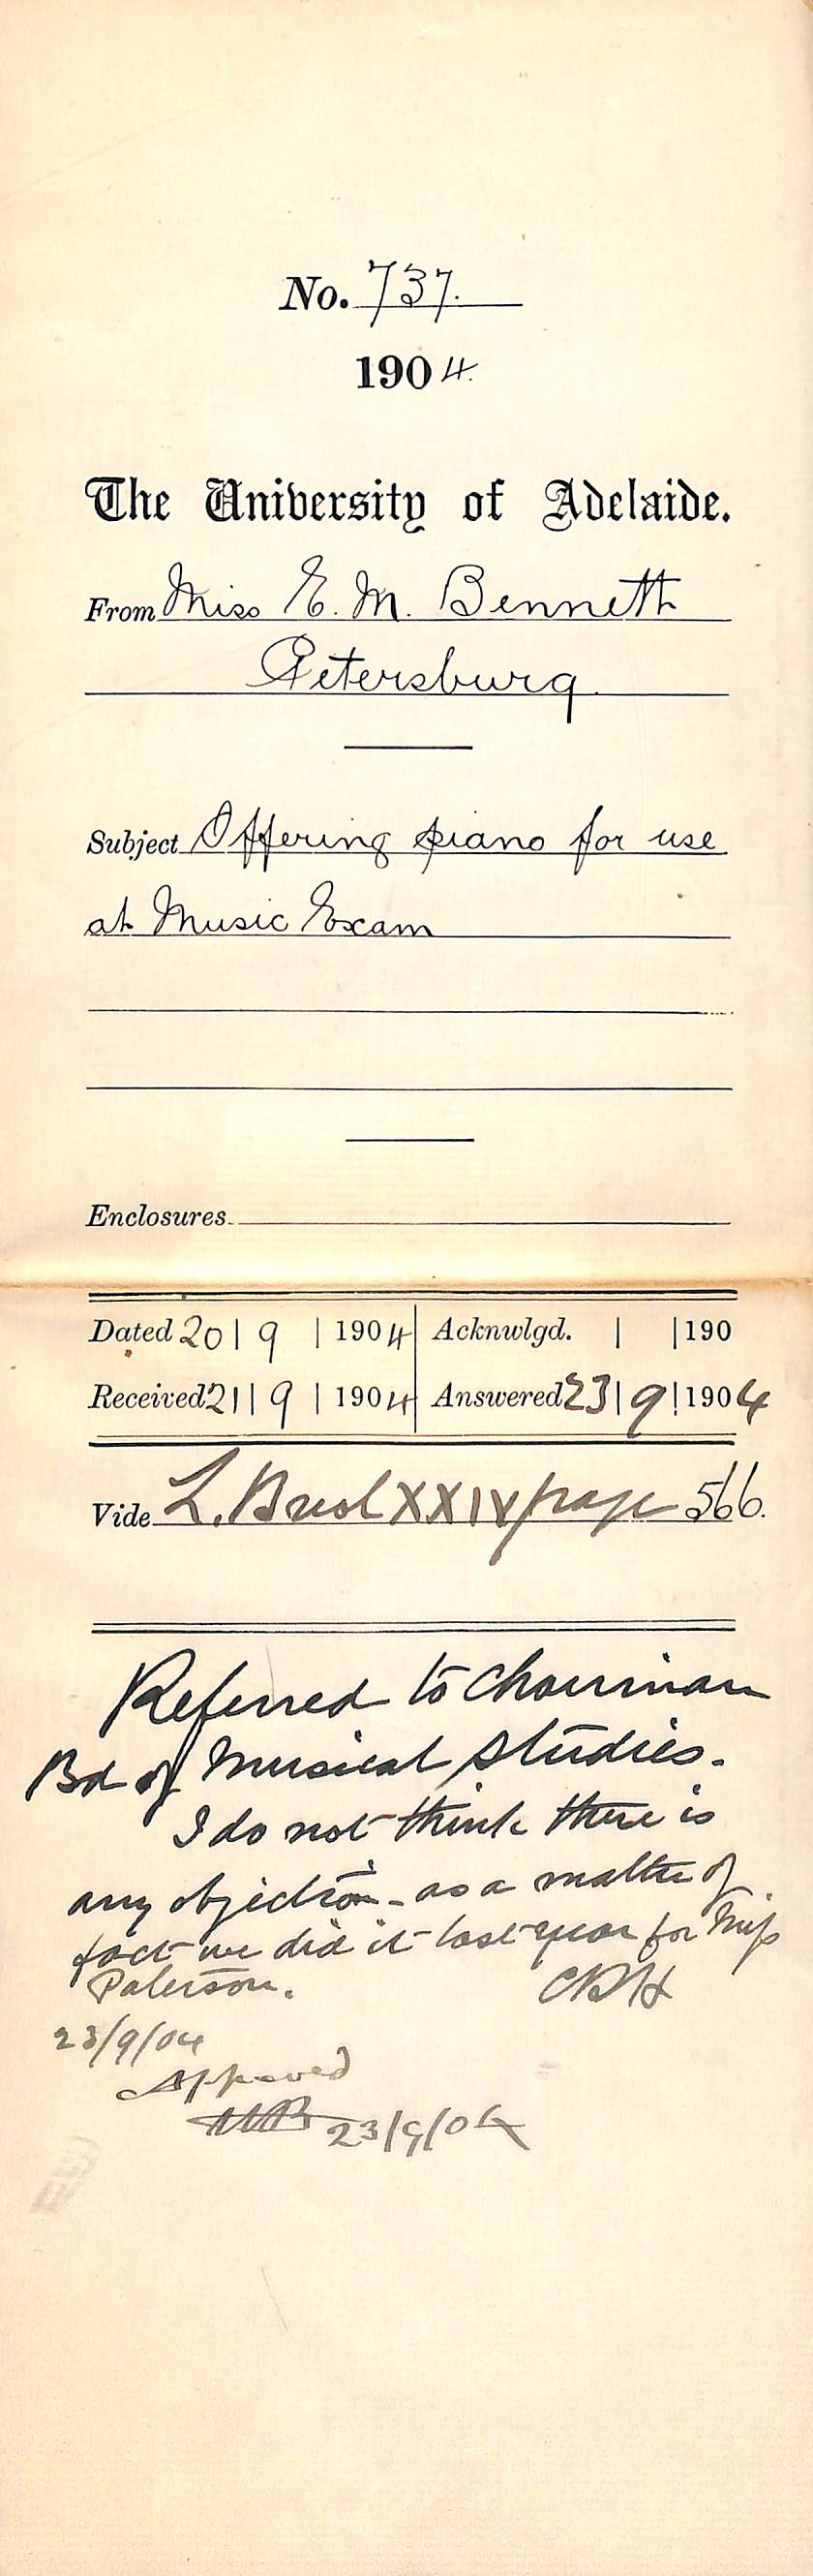 No. 737.
1904.
The University of Adelaide.
From Miss E. M. Bennett
Petersburg
Subject Offering piano for use
at Music Exam
Enclosures
Dated 20 | 9 | 1904 Acknwlgd. | | 190
Received 21 | 9 | 1904 Answered 23 | 9 | 1904
Vide L. XXIV page 566.
Referred to Chairman
Bd of Musical Studies.
I do not think there is
any objection - as a matter of
fact we did it last year for Miss
Paterson.
23/9/04
Approved
23/9/04